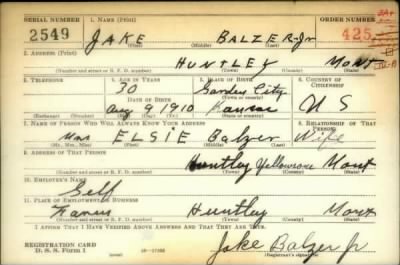 SERIAL NUMBER 1. NAME (Print) ORDER NUMBER
2549 JAKE BALZER-Jr 425
(First) (Middle) (Last)
2. ADDRESS (Print)
HUNTLEY MONT
(Number and street or R. F. D. number) (Town) (County) (State)
3. TELEPHONE 4. AGE IN YEARS 5. PLACE OF BIRTH 6. COUNTRY OF CITIZENSHIP
30 Garden City
DATE OF BIRTH (Town or county)
Aug 9 1910 Kansas U S
(Exchange) (Number) (Mo.) (Day) (Yr.) (State or country)
7. NAME OF PERSON WHO WILL ALWAYS KNOW YOUR ADDRESS 8. RELATIONSHIP OF THAT PERSON
Mrs ELSIE Balzer Wife
(Mr., Mrs., Miss) (First) (Middle) (Last)
9. ADDRESS OF THAT PERSON
Huntley Yellowstone Mont
(Number and street or R. F. D. number) (Town) (County) (State)
10. EMPLOYER'S NAME
Self
11. PLACE OF EMPLOYMENT OR BUSINESS
Farm Huntley Mont
(Number and street or R. F. D. number) (Town) (County) (State)
I AFFIRM THAT I HAVE VERIFIED ABOVE ANSWERS AND THAT THEY ARE TRUE.
REGISTRATION CARD
D. S. S. Form 1 Jake Balzer Jr
(Registrant's signature)